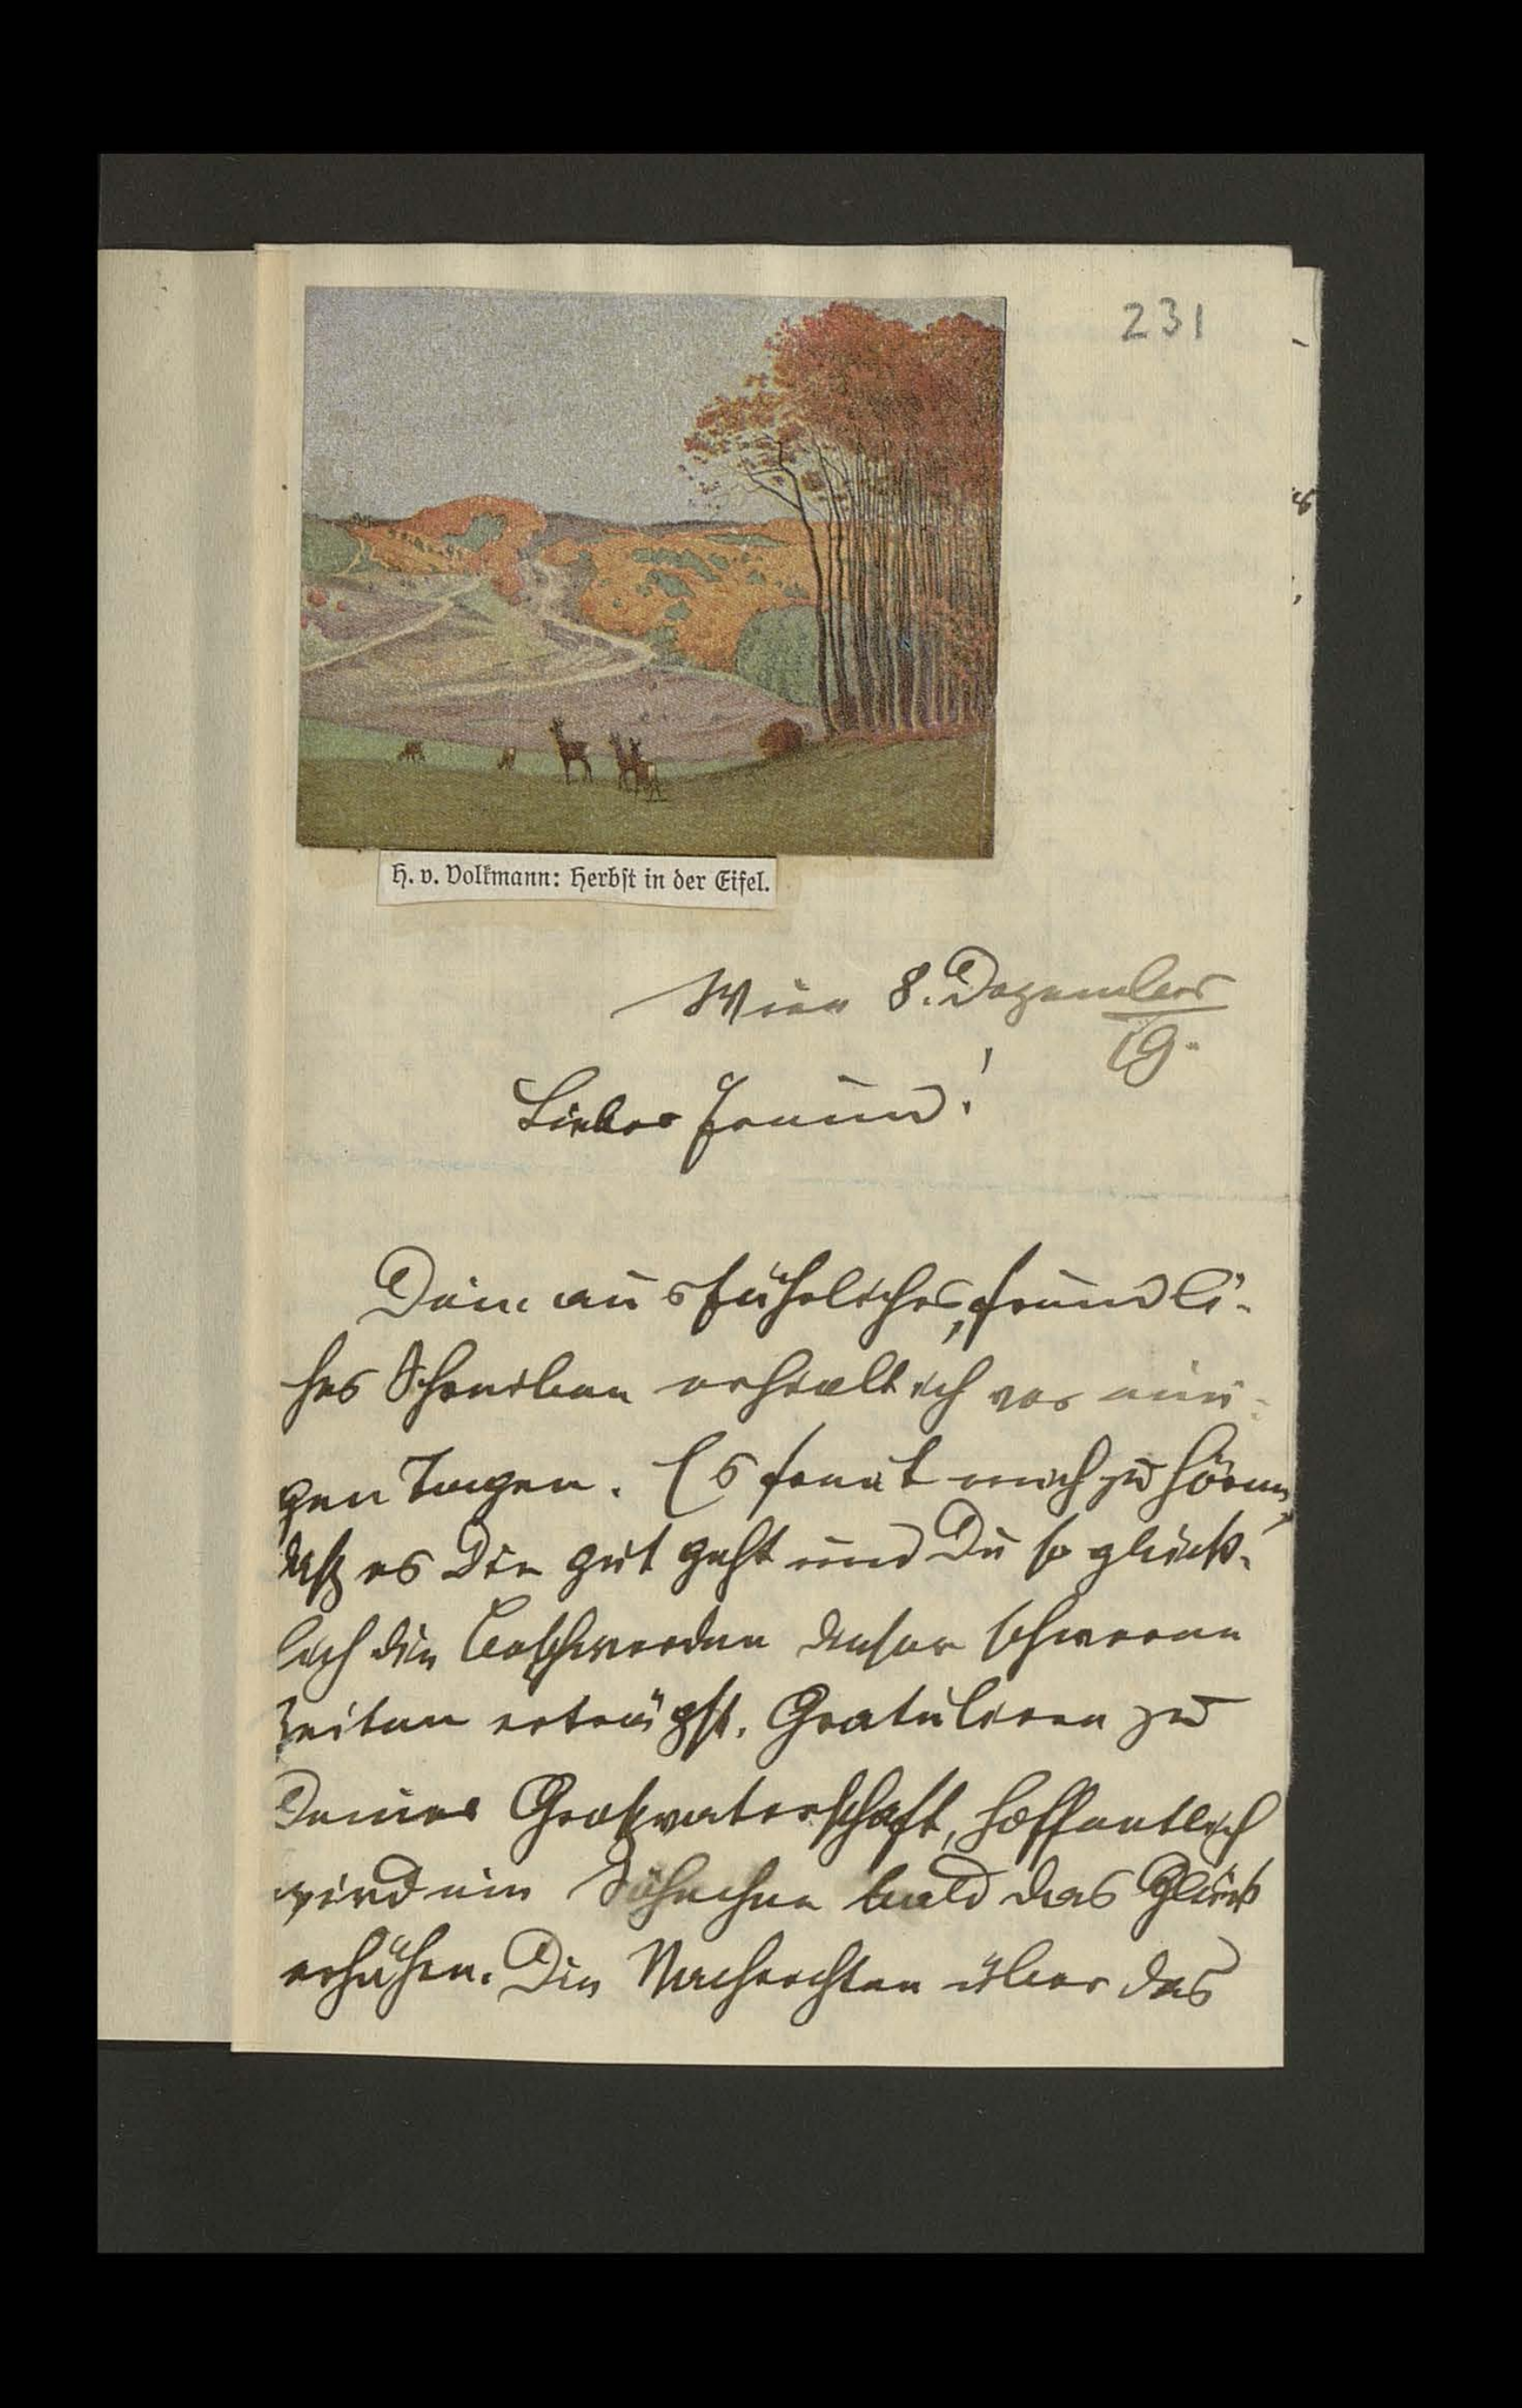 231
H. v. Volkmann: Herbst in der Eifel.
Wien 8. Dezember
19.
Lieber Freund!
Dein ausführliches, freundli-
ches Schreiben erhielt ich vor eini-
gen Tagen. Es freut mich zu hören,
daß es Dir gut geht und Du so glück-
lich die Beschwerden dieser schweren
Zeiten erträgst. Gratuliere zu
Deiner Großvaterschaft, hoffentlich
wird ein Söhnchen bald das Glück
erhöhen. Die Nachrichten über das